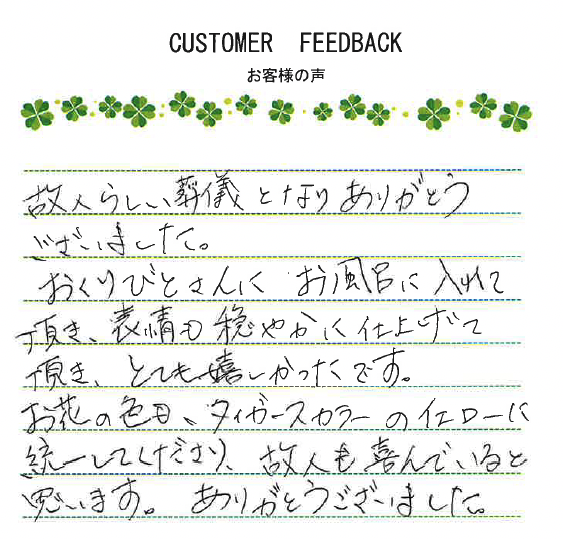 CUSTOMER FEEDBACK
お客様の声
故人らしい葬儀となりありがとう
ございました。
おくりびとさんに お風呂に入れて
頂き、表情も穏やかに仕上げて
頂き、とても嬉しかったです。
お花の色目、タイガースカラーのイエローに
統一してくださり、故人も喜んでいると
思います。 ありがとうございました。